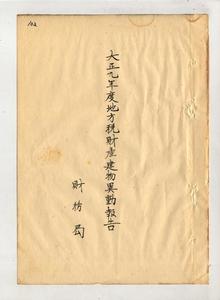 142
大正九年度地方税財産建物異動報告
財務局